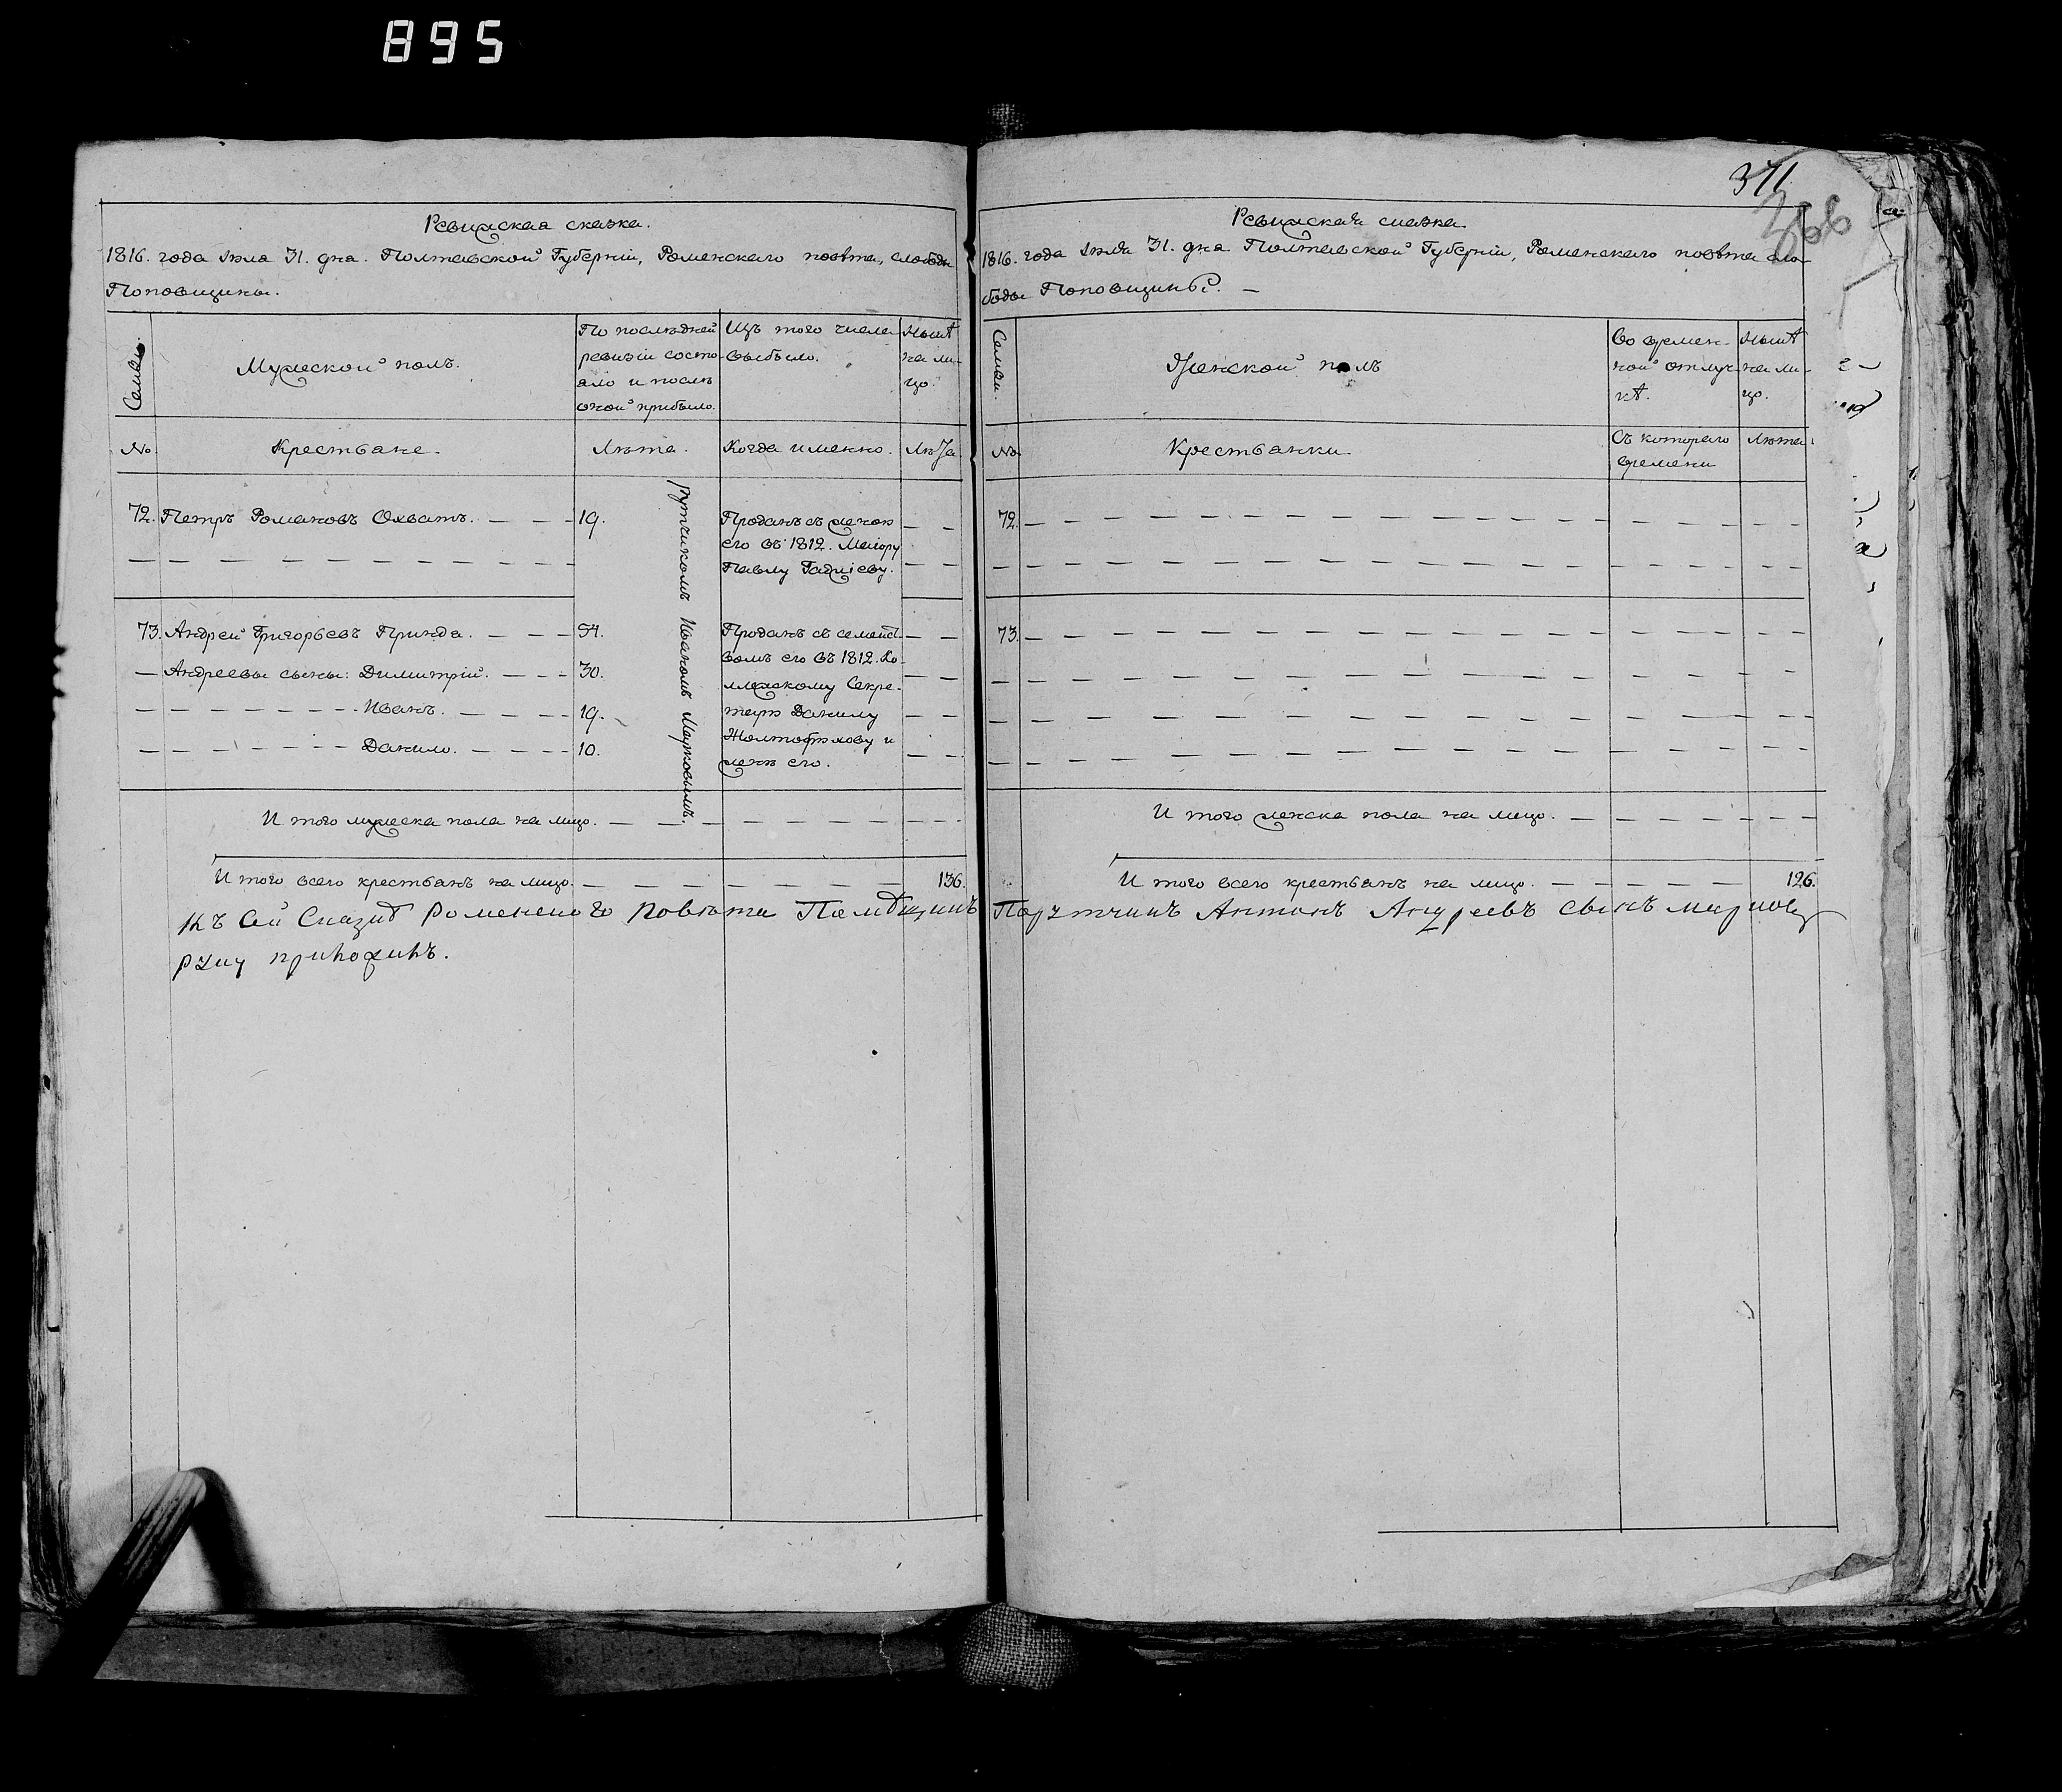 895
Ревижская сказка.
1816. года Іюля 31. дня. Полтавской Губерніи, Роменского повѣта, слободы
Поповщины.
Семьи.
Мужеской полъ.
По послѣдней
ревизіи состо-
яло и послѣ
оной прибыло.
Изъ того числа
выбыло.
Нынѣ
на ли-
цо.
№
Крестьяне.
Лѣта.
Когда именно.
Лѣта
72. Петръ Романовъ Охватъ. 19.
Проданъ съ женою
его въ 1812. Маіору
Павлу
73. Андрей Григорьевъ Принда. 54.
Андреевы сыны: Димитрій. 30.
Иванъ. 19.
Данило. 10.
Проданъ съ семейст-
вомъ его въ 1812. Ко-
лежскому Секре-
тарю Данилу
Жолтобрюхову и
женѣ его.
рутчикомъ Иваномъ Марковымъ.
И того мужеска пола на лицо.
И того всего крестьянъ на лицо. 136.
371
366
Ревижская сказка.
1816. года Іюля 31. дня Полтавской Губерніи, Роменского повѣта сло-
боды Поповщины. —
Семьи.
Женской полъ
Во времен-
ной отлуч-
кѣ.
Нынѣ
на ли-
цо.
№
Крестьянки.
Съ которого
времени
Лѣта
72.
73.
И того женска пола на лицо.
И того всего крестьянъ на лицо. 126.
Къ сей Сказкѣ Роменского Повѣта Помѣщикъ Порутчикъ Антонъ Андреевъ сынъ Марковъ
руку приложилъ.